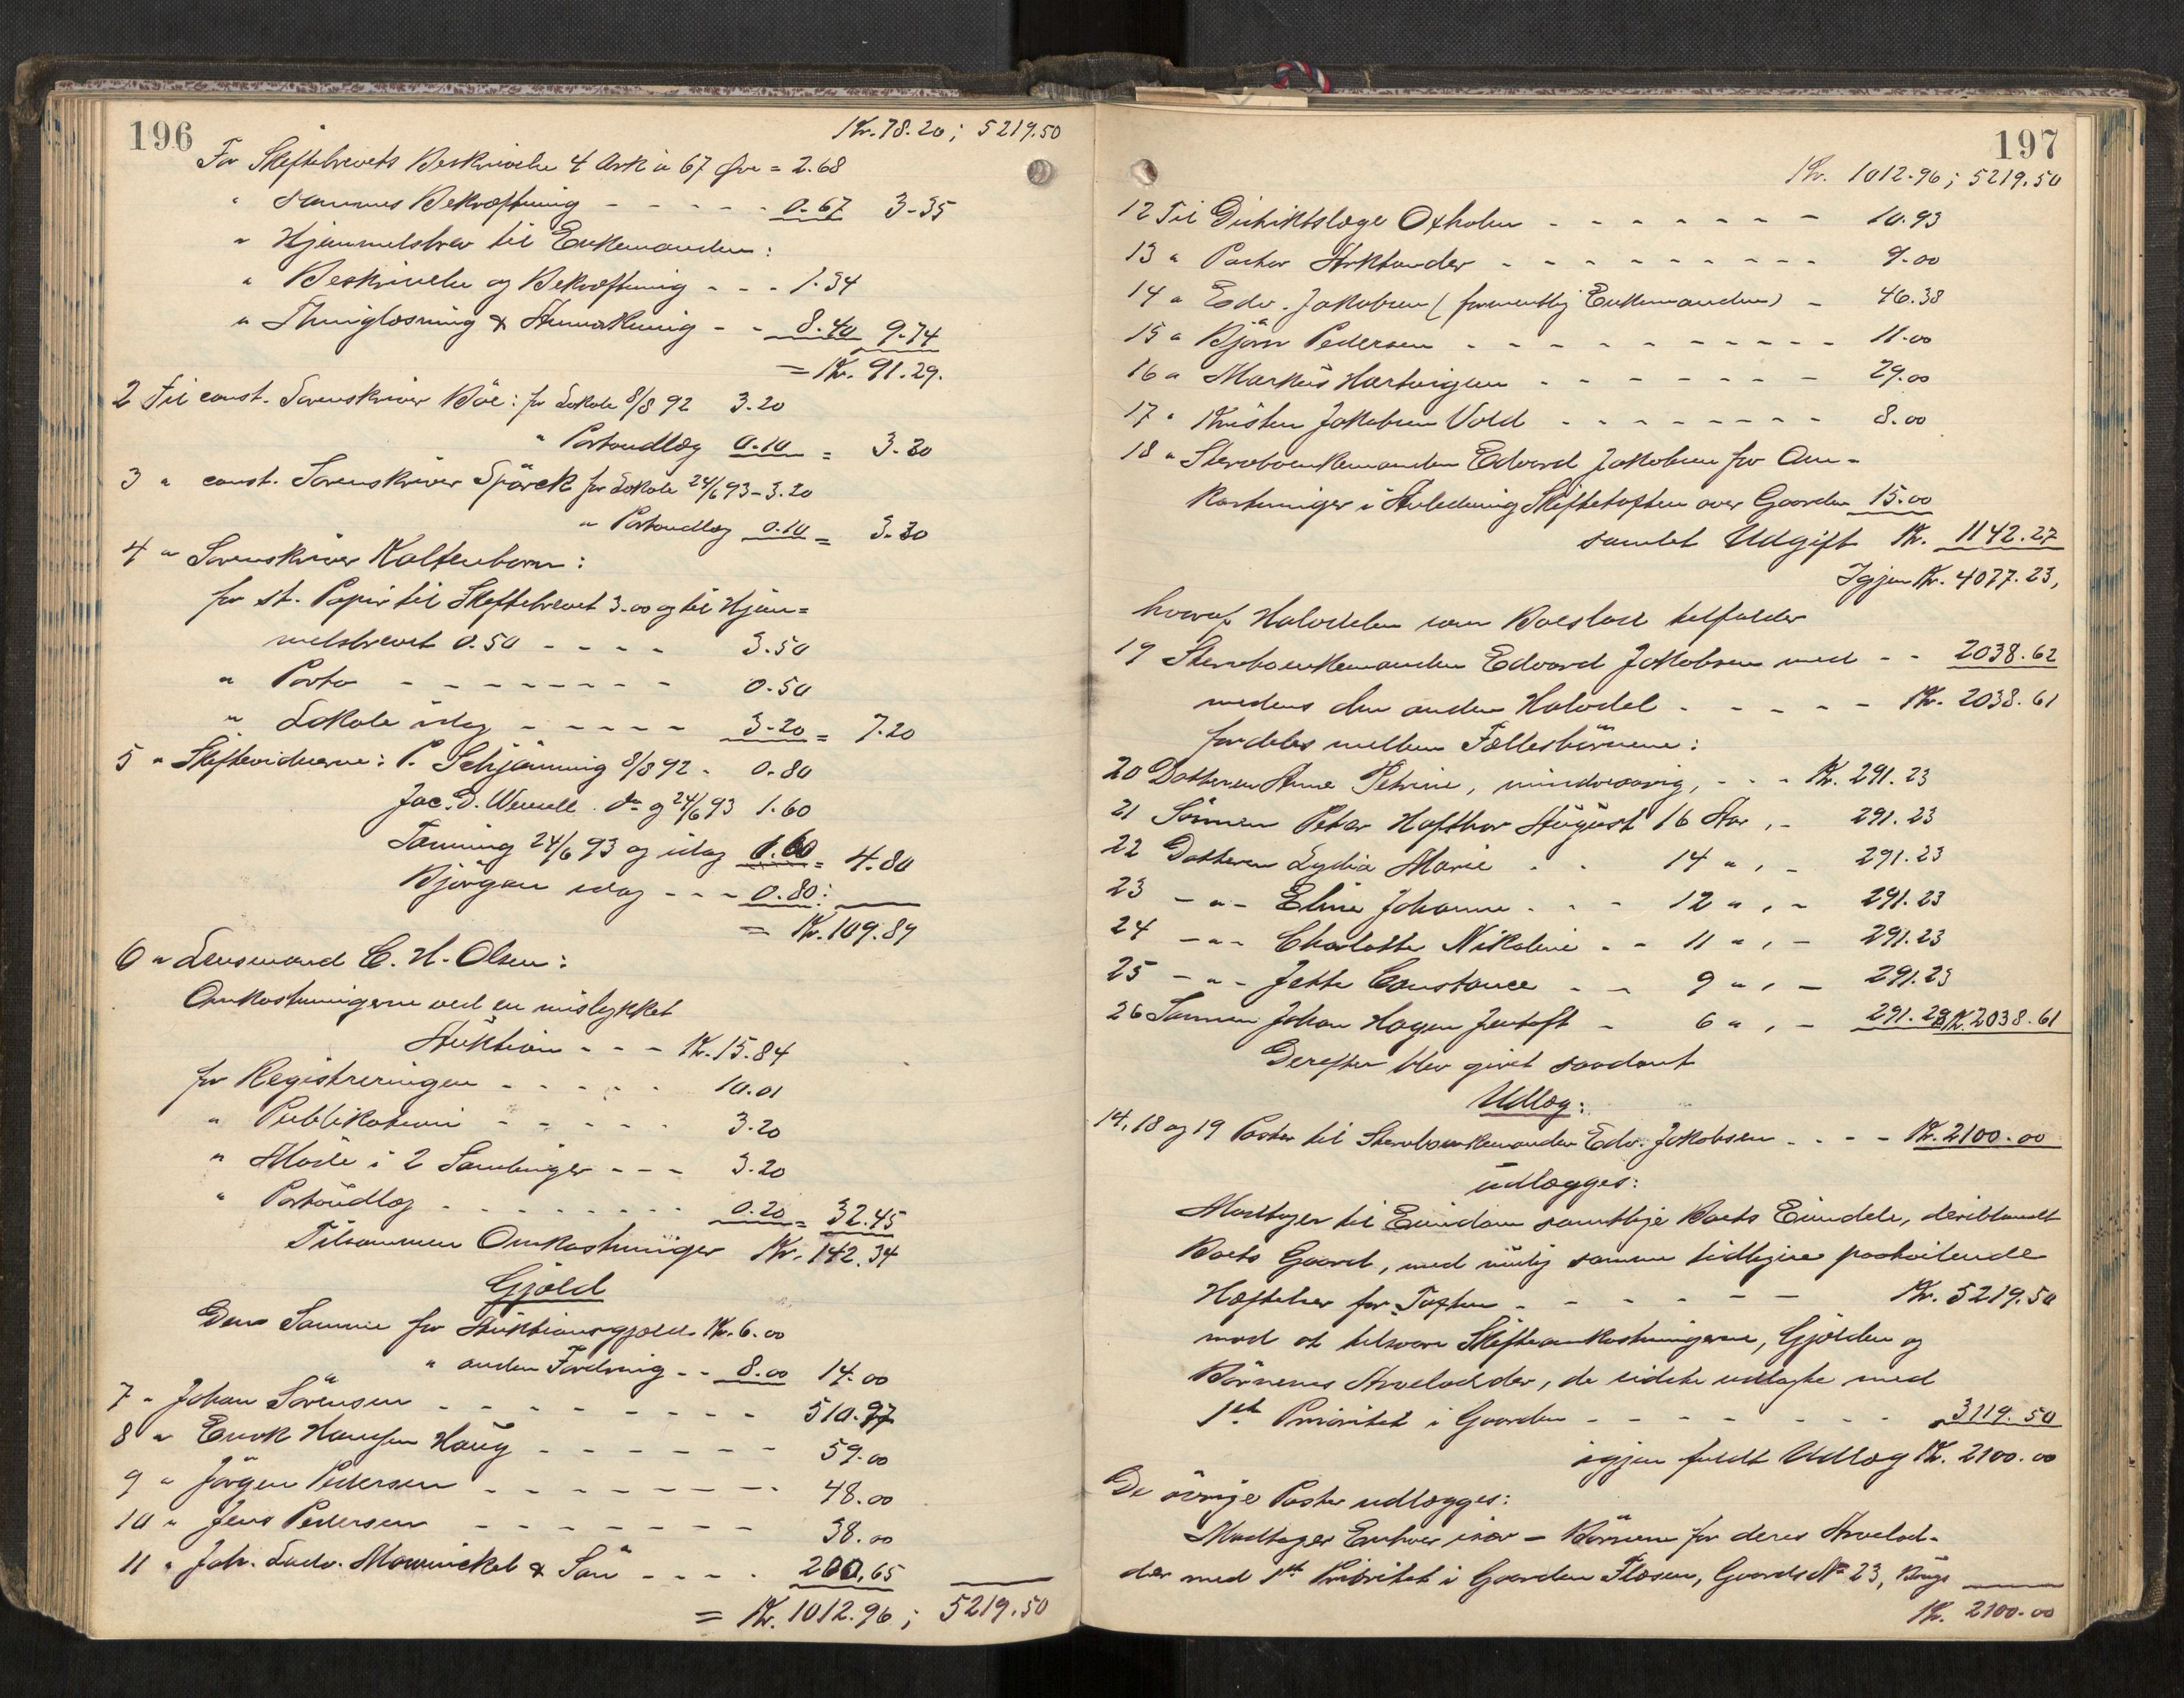 196
Kr. 78.20; 5219.50
For Skiftebrevets Beskrivelse 4 Ark a 67 Øre = 2.68
" sammes Bekræftning - - - - - 0.67 3-35
" Hjemmelsbrev til Enkemanden:
" Beskrivelse og Bekræftning - - - 1.34
" Thinglæsning & Anmærkning - - 8.40 9.74
= Kr. 91.29.
2 Til const. Sorenskriver Böe: for Lokale 8/8 92 3.20
" Portoudlæg 0.10 = 3.30
3 " const. Sorenskriver Spörck for Lokale 24/6 93 - 3.20
" Portoudlæg 0.10 = 3.30
4 " Sorenskriver Kaltenborn:
for st. Papir til Skiftebrevet 3.00 og til Hjem=
melsbrevet 0.50 - - - - 3.50
" Porto - - - - - - - - 0.50
" Lokale idag - - - - - 3-20 = 7.20
5 " Skiftevidnerne: P. Schjönning 8/8 92 - 0.80
Jac. D. Wensell do og 24/6 93 1.60
Tanning 24/6 93 og idag 1.60 = 4.80
Björgan idag - - - 0.80:
= Kr. 109.89
6 " Lensmand C. H. Olsen:
Omkostningerne ved en mislykket
Auktion - - - Kr. 15.84
for Registreringen - - - - - 10.01
" Publikationer - - - - - 3.20
" Möde i 2 Samlinger - - - 3.20
" Portoudlæg - - - - - - - - - 0.20 = 32.45
Tilsammen Omkostninger Kr. 142.34
Gjæld
Den Samme for Auktionsgjæld Kr. 6.00
" anden Fordring - - 8.00 14.00
7 " Johan Sörensen - - - - - - - - - 510.97
8 " Enok Hansen Haug - - - - - - 59.00
9 " Jörgen Pedersen - - - - - - - - 48.00
10 " Jens Pedersen - - - - - - - 38.00
11 " Joh. Ludv. Mowinckel & Sön - - - - 200.65
= Kr. 1012.96; 5219.50
197
Kr. 1012.96; 5219.50
12 Til Distriktslæge Oxholm - - - - - - - 10.93
13 " Pastor Arktander - - - - - - - - - 9.00
14 " Edv. Jakobsen (formentlig Enkemanden) - 46.38
15 " Björn Pedersen - - - - - - - - - - - 11.00
16 " Markus Hartvigsen - - - - - - - 29.00
17 " Kristen Jakobsen Vold - - - - - - - - 8.00
18 " Stervboenkemanden Edvard Jakobsen for Om-
kostninger i Anledning Skiftetaxten over Gaarden 15.00
samlet Udgift Kr. 1142.27
Igjen Kr. 4077.23,
hvoraf Halvdelen som Boeslod tilfalder
19 Stervboenkemanden Edvard Jakobsen med - - 2038.62
medens den anden Halvdel - - - - - Kr. 2038.61
fordeles mellem Fællesbörnene:
20 Datteren Anne Petrine, mindreaarig, - - - Kr. 291.23
21 Sönnen Peter Hafthor August 16 Aar, - 291.23
22 Datteren Lydia Marie - - 14 " , - 291.23
23 - " - Eline Johanne - - - 12 " , - 291.23
24 - " - Charlotte Nikoline - - 11 " , - 291.23
25 - " - Jette Constance - - 9 " , - 291.23
26 Sönnen Johan Hagen Jentoft - 6 " , - 291.23 Kr. 2038.61
Derefter blev givet saadant
Udlæg:
14, 18 og 19 Poster til Stervboenkemanden Edv. Jakobsen - - - - Kr. 2100.00
udlægges:
Modtager til Eiendom samtlige Boets Eiendele, deriblandt
Boets Gaard, med mulig samme tidligere paahvilende
Hæftelser for Taxten - - - - - - Kr. 5219.50
mod at tilsvare Skifteomkostningerne, Gjælden og
Börnenes Arvelodder, de sidste udlagte med
1st Prioritet i Gaarden - - - - - - - - 3119.50
igjen fuldt Udlæg Kr. 2100.00
De övrige Poster udlægges:
Modtager Enhver især - Börnene for deres Arvelod-
der med 1st Prioritet i Gaarden Flosen, Gaards No 23, Brugs
Kr. 2100.00